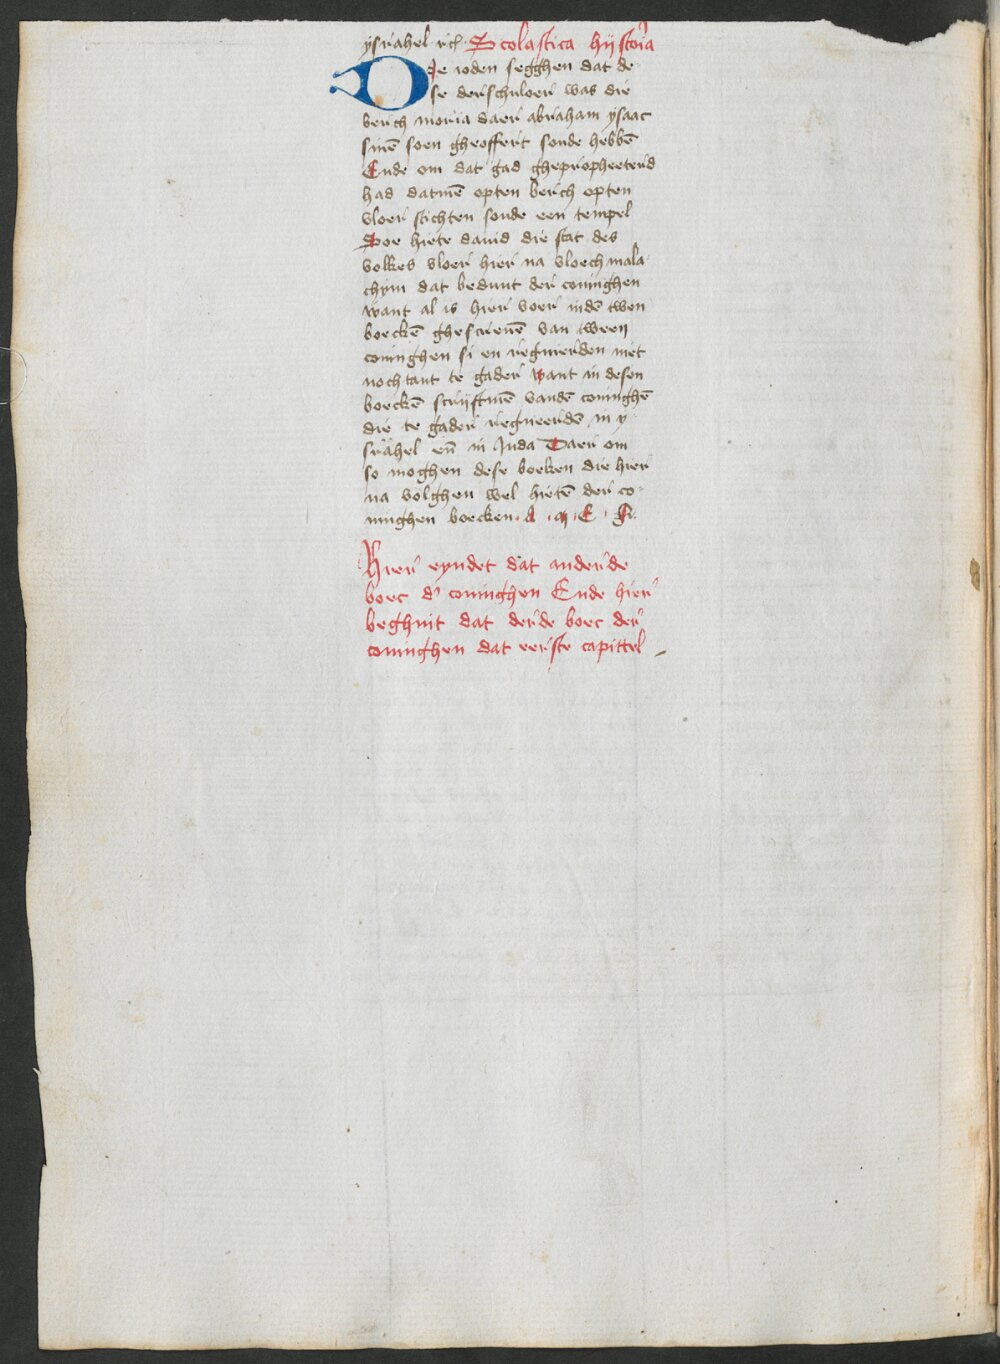 ysrahel rcͭ Scolastica hijstoria
Die ioden segghen dat de
se derschvloer was die
berch moria daer abraham ysaac
sinē soen gheoffert soude hebbē
Ende om dat gad ghepropheteerd
had datmē opten berch opten
vloer stichten soude een tempel
Soe hiete dauid die stat des
volkes vloer hier na vloech mala
chym dat beduut der coninghen
want al is hier voer indē twen
boeckē ghescreuē van tween
coninghen si en regnierden niet
nochtant te gader want in desen
boeckē scrijftmē vandē coninghē
die te gader regneerdē in y
srahel en̄ in Juda Daer om
so moghen dese boeken die hier
na volghen wel hietē der co
ninghen boecken
Hier eyndet dat anderde
boec d' coninghen Ende hier
beghint dat derde boec der
coninghen dat eerste capittel